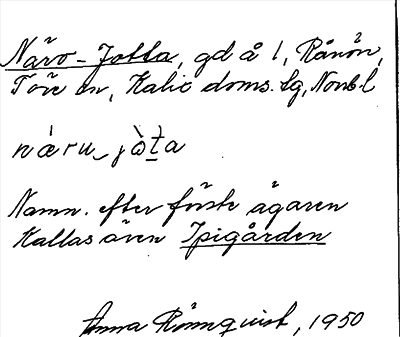 Näro-Jotta, gd å 1, Rånön,
Töre sn, Kalix doms. lg, Nonb. l
næ̀ru-jòta
Namn. efter förste ägaren
Kallas även Spigården
Anna Rönnqvist, 1950